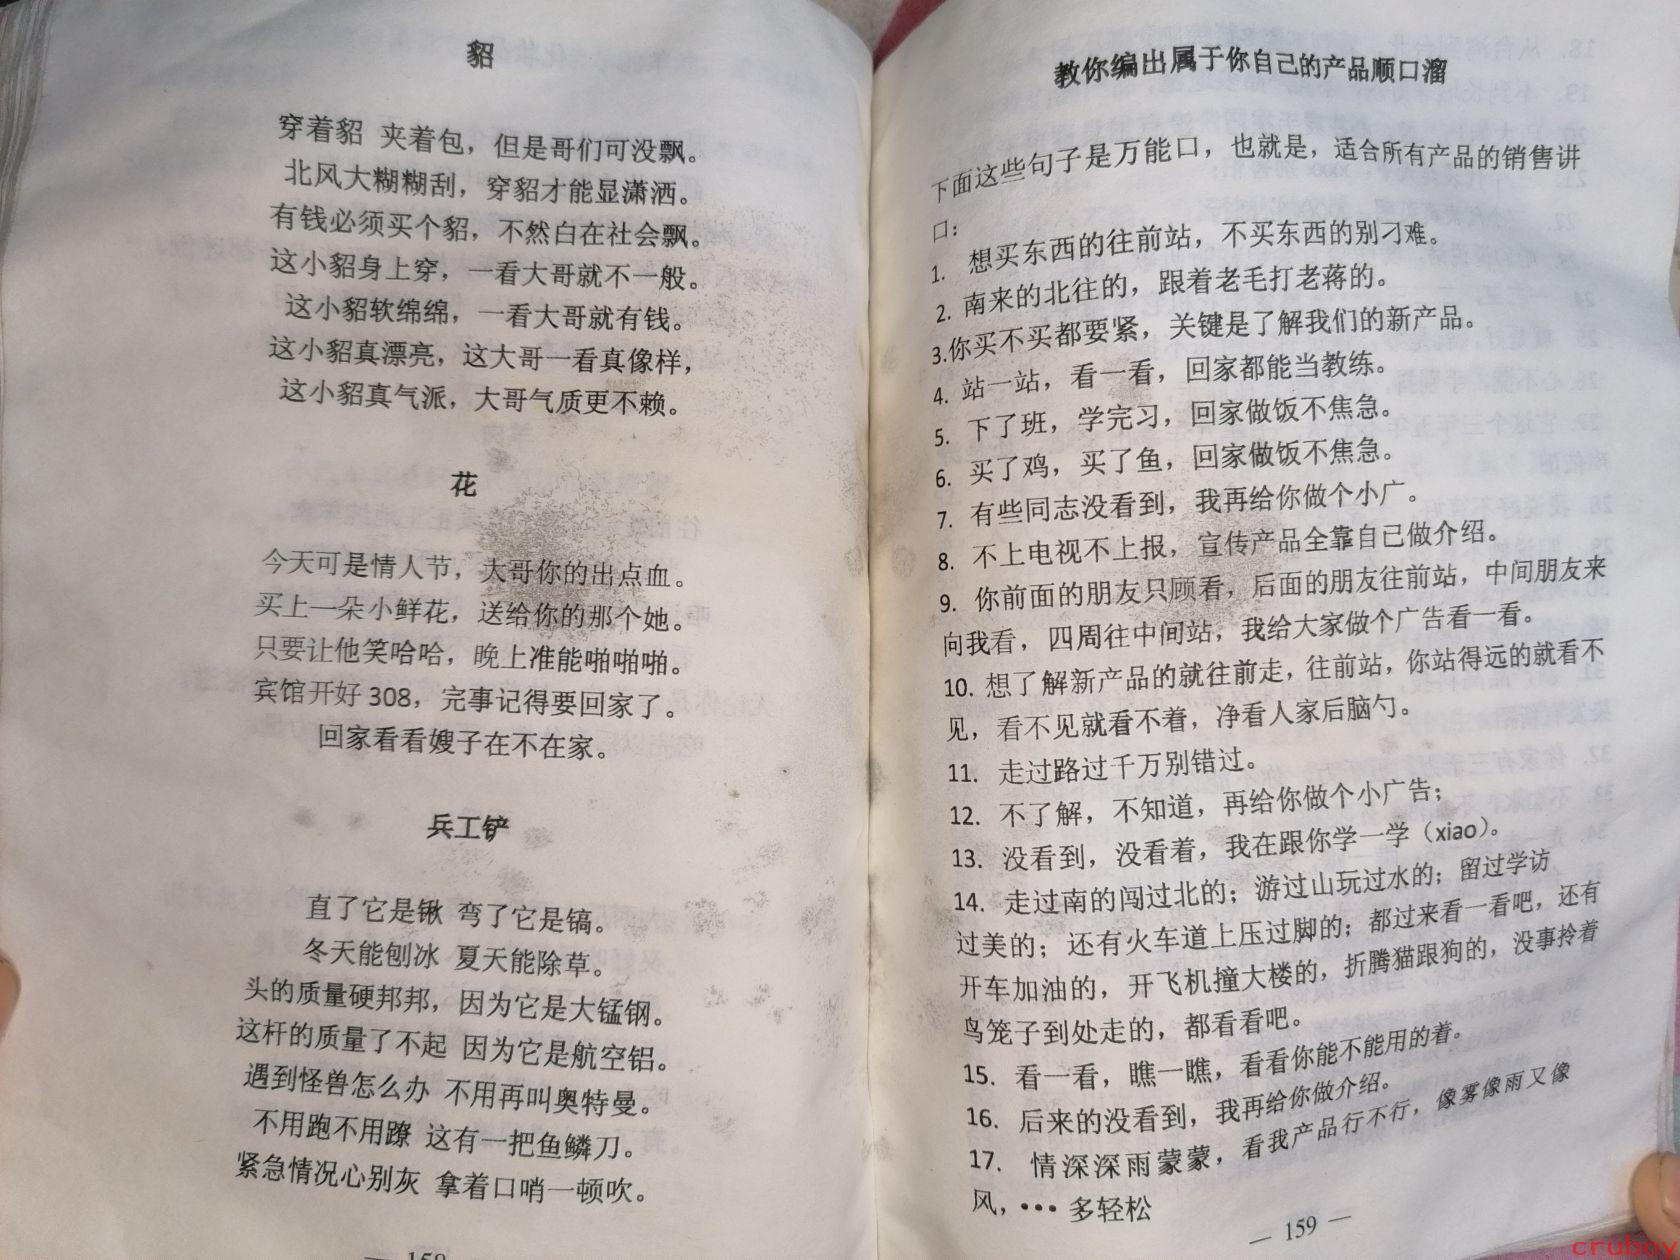 貂
穿着貂 夹着包，但是哥们可没飘。
北风大糊糊刮，穿貂才能显潇洒。
有钱必须买个貂，不然白在社会飘。
这小貂身上穿，一看大哥就不一般。
这小貂软绵绵，一看大哥就有钱。
这小貂真漂亮，这大哥一看真像样，
这小貂真气派，大哥气质更不赖。
花
今天可是情人节，大哥你的出点血。
买上一朵小鲜花，送给你的那个她。
只要让他笑哈哈，晚上准能啪啪啪。
宾馆开好308，完事记得要回家了。
回家看看嫂子在不在家。
兵工铲
直了它是锹 弯了它是镐。
冬天能刨冰 夏天能除草。
头的质量硬邦邦，因为它是大锰钢。
这杆的质量了不起 因为它是航空铝。
遇到怪兽怎么办 不用再叫奥特曼。
不用跑不用蹽 这有一把鱼鳞刀。
紧急情况心别灰 拿着口哨一顿吹。
— 158
教你编出属于你自己的产品顺口溜
下面这些句子是万能口，也就是，适合所有产品的销售讲
口：
1. 想买东西的往前站，不买东西的别刁难。
2. 南来的北往的，跟着老毛打老蒋的。
3.你买不买都要紧，关键是了解我们的新产品。
4. 站一站，看一看，回家都能当教练。
5. 下了班，学完习，回家做饭不焦急。
6. 买了鸡，买了鱼，回家做饭不焦急。
7. 有些同志没看到，我再给你做个小广。
8. 不上电视不上报，宣传产品全靠自己做介绍。
9. 你前面的朋友只顾看，后面的朋友往前站，中间朋友来
向我看，四周往中间站，我给大家做个广告看一看。
10. 想了解新产品的就往前走，往前站，你站得远的就看不
见，看不见就看不着，净看人家后脑勺。
11. 走过路过千万别错过。
12. 不了解，不知道，再给你做个小广告；
13. 没看到，没看着，我在跟你学一学（xiao）。
14. 走过南的闯过北的；游过山玩过水的；留过学访
过美的；还有火车道上压过脚的；都过来看一看吧，还有
开车加油的，开飞机撞大楼的，折腾猫跟狗的，没事拎着
鸟笼子到处走的，都看看吧。
15. 看一看，瞧一瞧，看看你能不能用的着。
16. 后来的没看到，我再给你做介绍。
17. 情深深雨蒙蒙，看我产品行不行，像雾像雨又像
风，••• 多轻松
— 159 —
cruboy